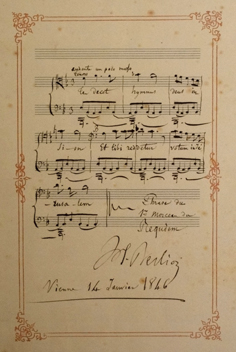 andante un poco maestoso
Te decet hymnus deus in
Si - on Et tibi reddetur votum in Je
- rusa - lem
Phrase du
1er morceau du
Requiem
H. Berlioz
Vienne 16 Janvier 1846